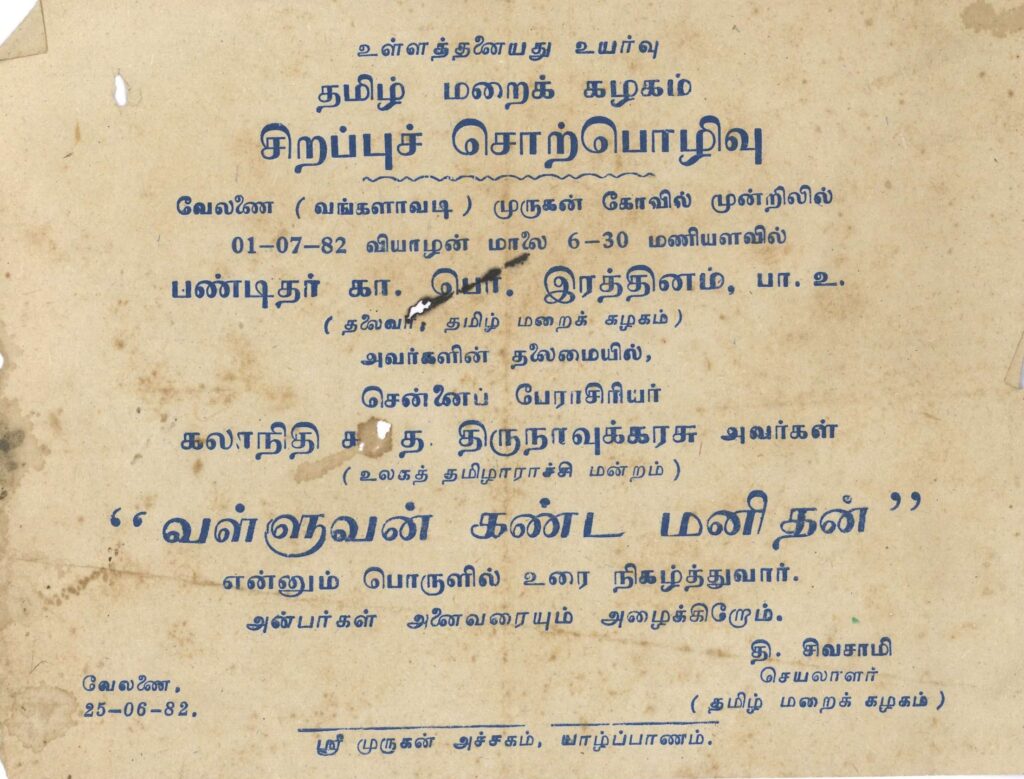 உள்ளத்தனையது உயர்வு
தமிழ் மறைக் கழகம்
சிறப்புச் சொற்பொழிவு
வேலணை ( வங்களாவடி ) முருகன் கோவில் முன்றிலில்
01-07-82 வியாழன் மாலை 6-30 மணியளவில்
பண்டிதர் கா. பொ. இரத்தினம், பா. உ.
( தலைவர், தமிழ் மறைக் கழகம் )
அவர்களின் தலைமையில்,
சென்னைப் பேராசிரியர்
கலாநிதி க த. திருநாவுக்கரசு அவர்கள்
( உலகத் தமிழாராச்சி மன்றம் )
“ வள்ளுவன் கண்ட மனிதன் ”
என்னும் பொருளில் உரை நிகழ்த்துவார்.
அன்பர்கள் அனைவரையும் அழைக்கிறோம்.
தி. சிவசாமி
செயலாளர்
( தமிழ் மறைக் கழகம் )
வேலணை,
25-06-82.
ஸ்ரீ முருகன் அச்சகம், யாழ்ப்பாணம்.